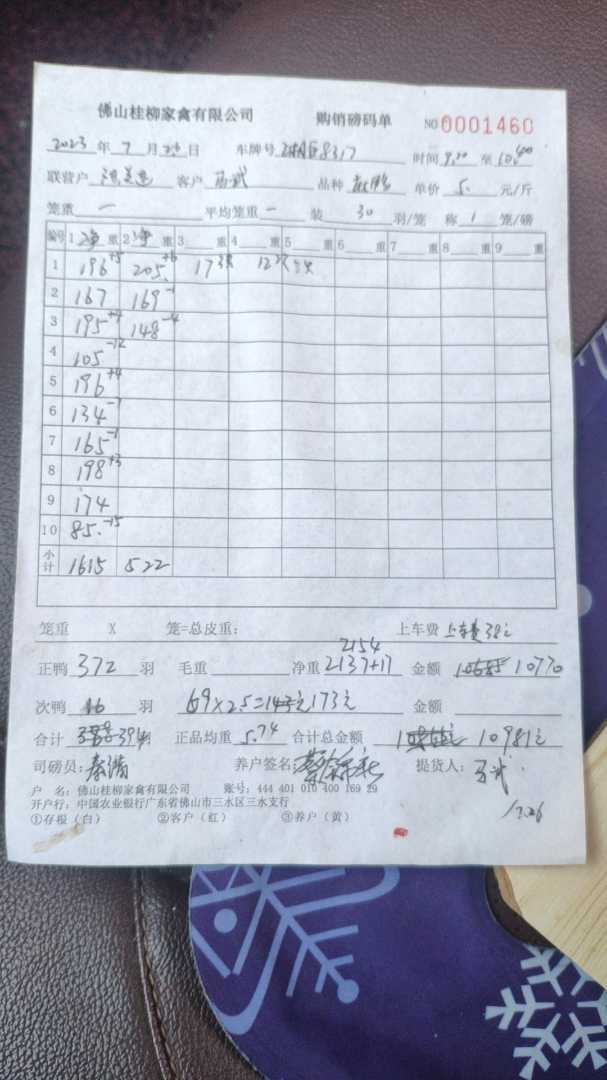 佛山桂柳家禽有限公司 购销磅码单 NO 0001460
2023 年 7 月 日 车牌号 8317 时间 9.20 至 10.40
联营户 客户 品种 单价 5. 元/斤
笼重 一 平均笼重 一 装 30 羽/笼 称 1 笼/磅
编号 1 净 重 2 净 重 3 重 4 重 5 重 6 重 7 重 8 重 9 重
1 196+5 205+6 17 12
2 167 169-1
3 195+4 148-4
4 105-12
5 196+4
6 134-1
7 165-1
8 198+3
9 174
10 85.-15
小计 1615 522
笼重 X 笼=总皮重: 上车费 上车费38元
2154
正鸭 372 羽 毛重 净重 2137+17 金额 10685 10770
次鸭 16 羽 69×2.5=173元 金额
合计 394 羽 正品均重 5.74 合计总金额 10981元
司磅员: 秦满 养户签名: 提货人:
户 名: 佛山桂柳家禽有限公司 账号: 444 401 010 400 169 29
开户行: 中国农业银行广东省佛山市三水区三水支行
①存根(白) ②客户(红) ③养户(黄)
17.26